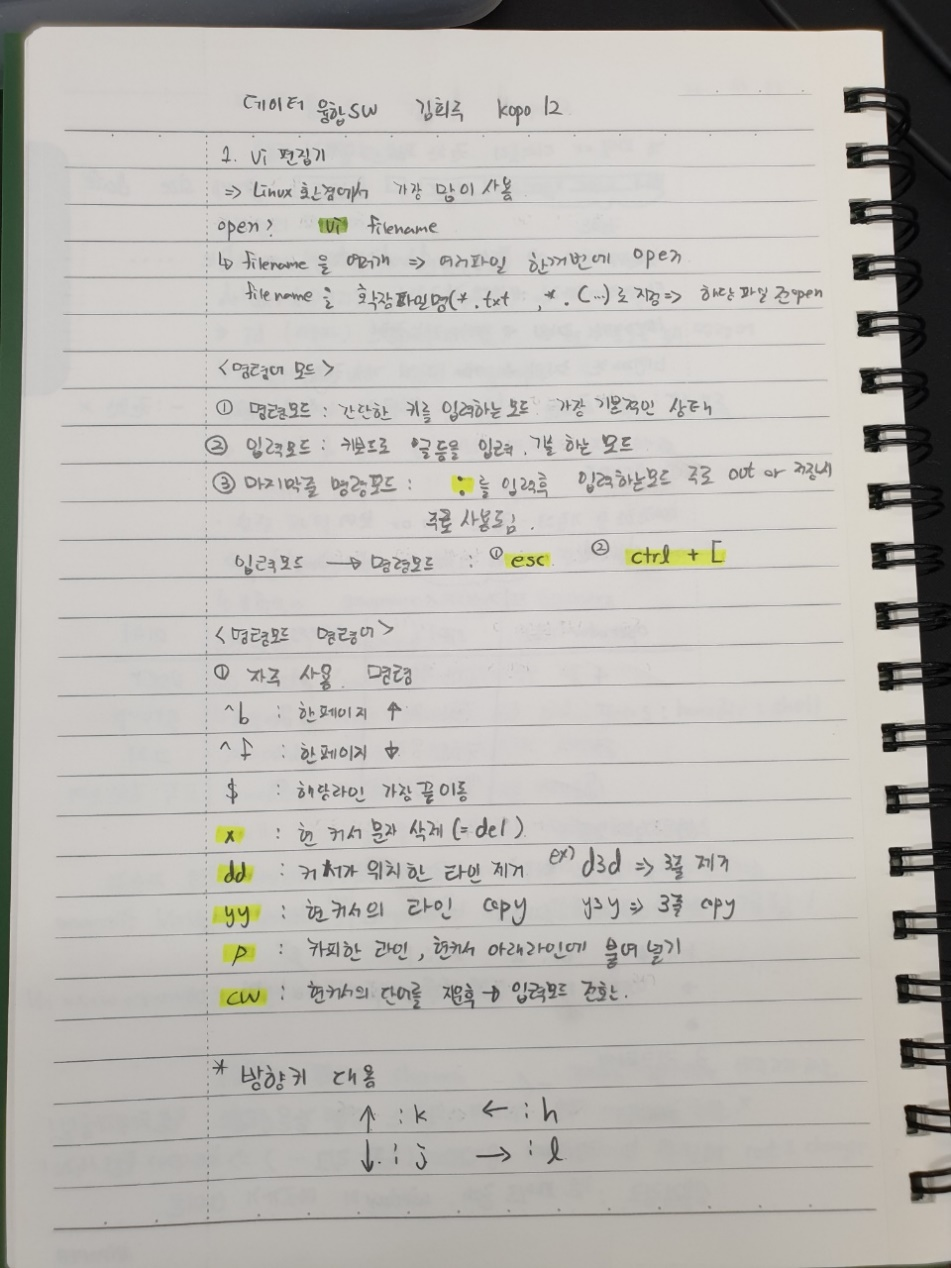 데이터 융합SW 김희주 kopo 12
1. vi 편집기
=> Linux 환경에서 가장 많이 사용
open? vi filename
↳ filename 을 여러개 => 여러파일 한꺼번에 open
filename 을 확장파일명(*.txt , *.(...)로 지정=> 해당 파일 전open
<명령어 모드>
① 명령모드 : 간단한 키를 입력하는 모드 가장 기본적인 상태
② 입력모드 : 키보드로 글 등을 입력, 하는 모드
③ 마지막줄 명령모드 : : 를 입력후 입력하는모드 주로 out or 저장시
주로 사용도임.
입력모드 → 명령모드 : ① esc ② ctrl + [
<명령모드 명령어>
① 자주 사용 명령
^b : 한페이지 ↑
^f : 한페이지 ↓
$ : 해당라인 가장 끝이동
x : 현 커서 문자 삭제 (= del)
dd : 커서가 위치한 라인 제거 ex) d3d => 3줄 제거
yy : 현커서의 라인 copy y3y => 3줄 copy
p : 카피한 라인, 현커서 아래라인에 붙여 넣기
cw : 현커서의 단어를 지운후 → 입력모드 전환.
* 방향키 대용
↑ : k ← : h
↓ : j → : l